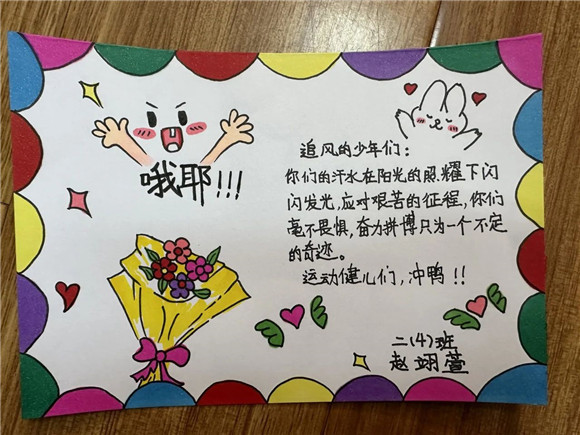 哦耶!!!
追风的少年们:
你们的汗水在阳光的照耀下闪
闪发光,应对艰苦的征程,你们
毫不畏惧,奋力拼博只为一个不定
的奇迹。
运动健儿们,冲鸭!!
二(4)班
赵翊萱